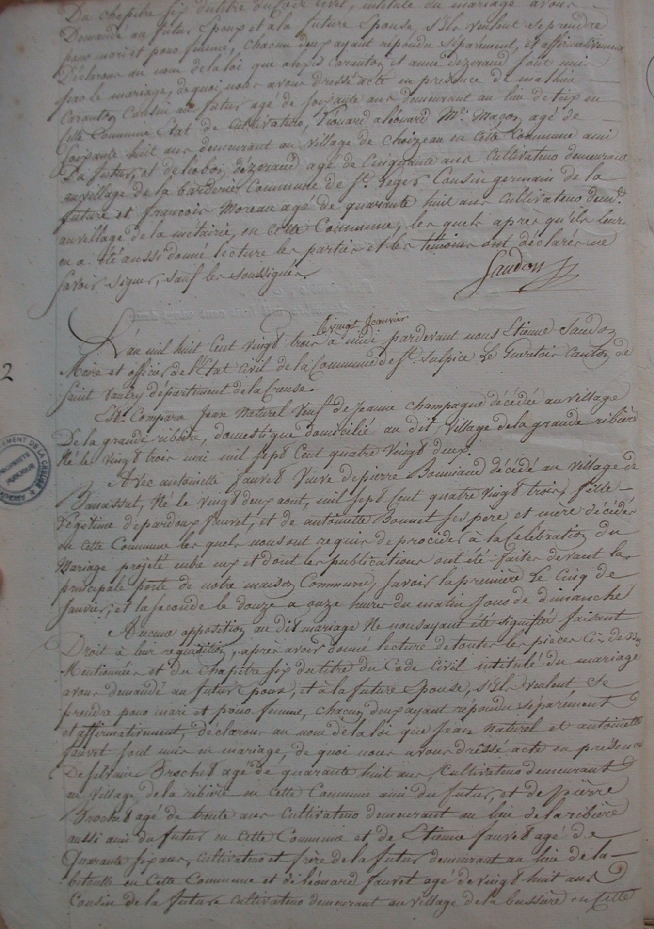 Du chapitre six du titre du Code Civil, intitulé du mariage avons
Demandé au futur Epoux et a la future Epouse, s'ils veulent se prendre
pour mari et pour femme, chacun deux ayant répondu séparément, et affirmativement
Déclarons au nom de la loi que Caranton et anne dezeraud sont uni
par le mariage, de quoi nous avons dressé acte en présence de mathieu
Caranton Cousin au futur agé de soixante ans demeurant au lieu de en
cette Commune Etat de Cultivateur, Léonard M. Magor, agé de
soixante huit ans demeurant au village de choizeau en cette Commune ami
Du futur, et de dezeraud agé de Cinquante ans Cultivateur demeurant
au village de la barderie Commune de St. leger Cousin germain de la
future et francois Moreau agé de quarante huit ans Cultivateur demt.
au village de la métairie, en cette Commune, les quels après qu'ils leur
en a été aussi donné lecture les parties et les témoins ont déclarés ne
savoir signer, sauf les soussignés.
Jaudon
le vingt Janvier
L'an mil huit Cent vingt trois à midi pardevant nous Etienne Jaudon
Maire et officier de l'Etat Civil de la Commune de St. Sulpice Le Guéretois Canton de
Saint Vaulry département de la Creuse.
2
Est Comparu Jean Naturel Veuf de Jeanne Champagne décédée au village
De la grande ribière, domestique domicilié au dit village de la grande ribière
Né le vingt trois mai mil sept Cent quatre vingt deux.
Avec antoinette fauvet Veuve de pierre Bonnaud décédé au village de
Banassat, Né le vingt deux aout, mil sept Cent quatre vingt trois, fille
légitime de pardoux fauvet, et de antoinette Bonnet ses père et mère décédés
en cette Commune les quels nous ont requis de procéder à la Célébration du
Mariage projeté entre eux et dont les publications ont été faites devant la
principale porte de notre maison Commune, savoir la première le Cinq de
Janvier, et la seconde le douze a onze heures du matin Jour de dimanche
Aucune opposition au dit mariage Ne nous ayant été signifié faisant
Droit à leur requisition, apres avoir donné lecture de toutes les pièces Ci-dessus
Mentionnées et du Chapitre six du titre du Code Civil intitulé du mariage
avons demandé au futur Epoux, et à la future Epouse, s'ils veulent se
prendre pour mari et pour femme, chacun deux ayant repondu séparément
et affirmativement, déclarons au nom de la loi que Jean Naturel et antoinette
fauvet sont unis en mariage, de quoi nous avons dressé acte en présence
De Silvain Brochet agé de quarante huit ans Cultivateur demeurant
au village de la ribière en cette Commune ami du futur, et de pierre
Brochet agé de trente ans Cultivateur demeurant au lieu de la ribière
aussi ami du futur en cette Commune et de Etienne fauvet agé de
quarante six ans, Cultivateur et frère de la future demeurant au lieu de la
en cette Commune et de léonard fauvet agé de vingt huit ans
Cousin de la future Cultivateur demeurant au village de la bussière en Cette